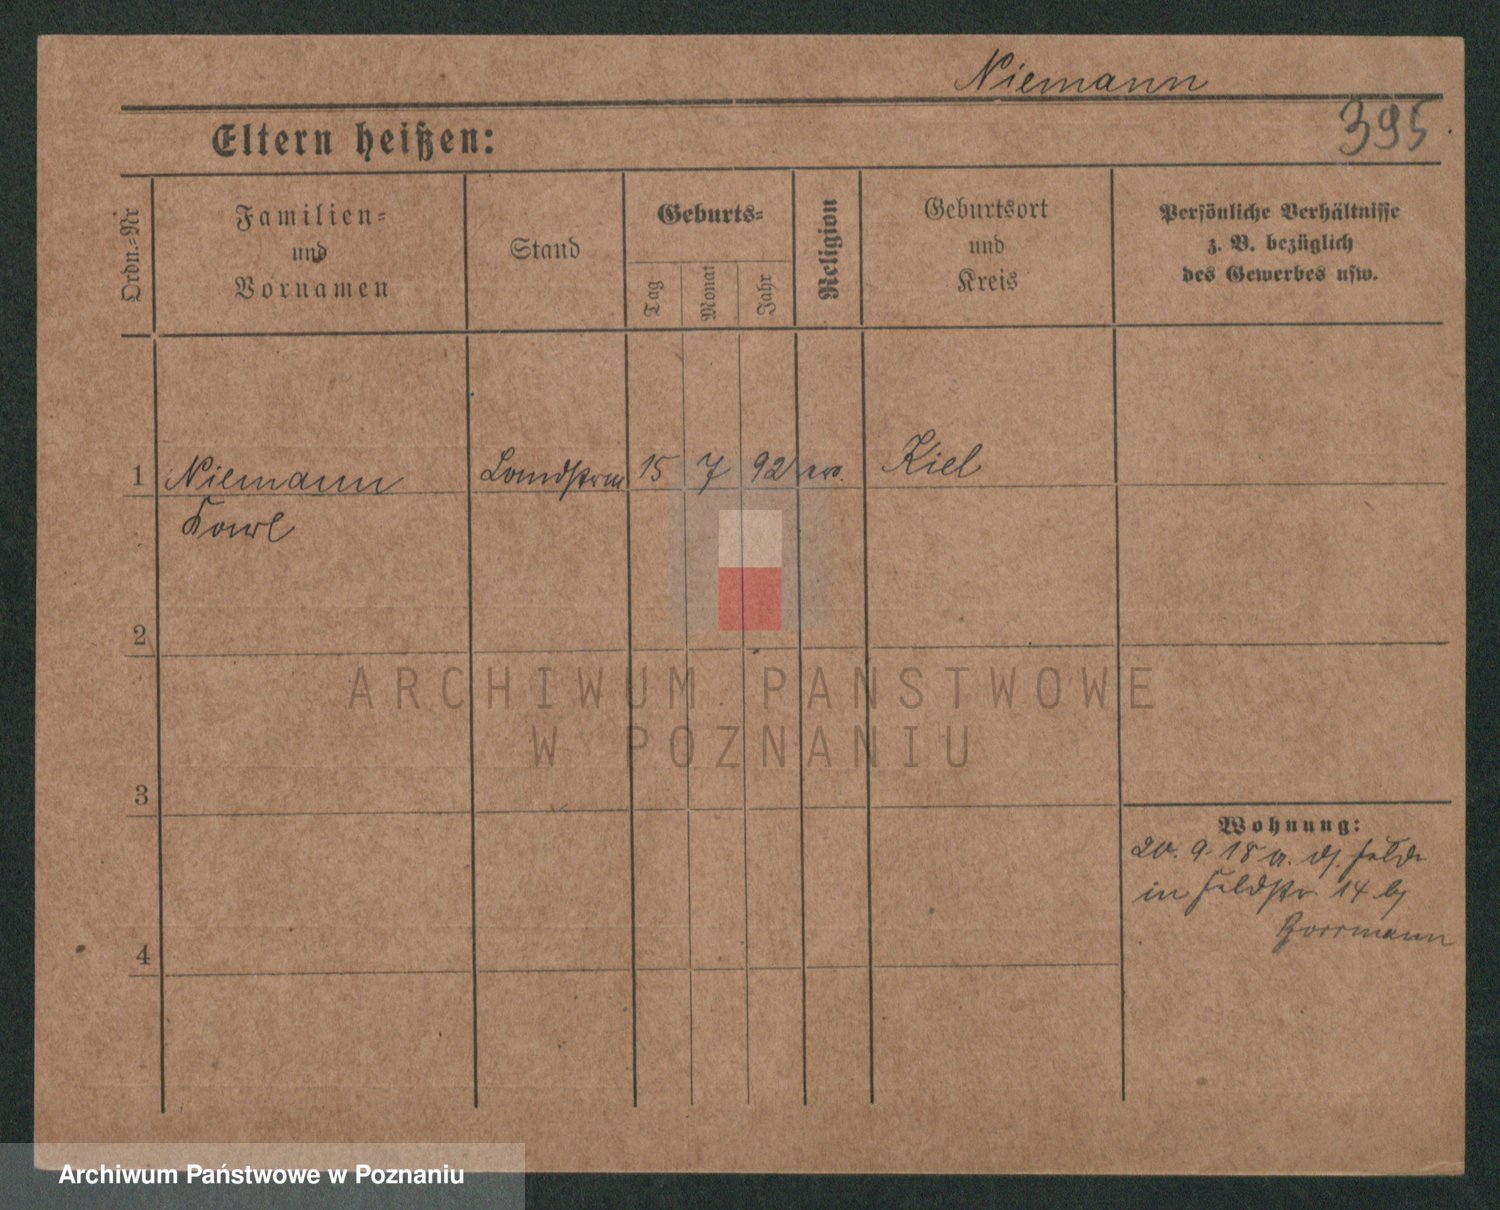 Niemann
395
Eltern heißen:
Ordn.=Nr
Familien=
und
Vornamen
Stand
Geburts=
Tag
Monat
Jahr
Religion
Geburtsort
und
Kreis
Persönliche Verhältnisse
z. B. bezüglich
des Gewerbes usw.
1 Niemann Landstrm 15 7 92 ev. Kiel
Karl
2
ARCHIWUM PAŃSTWOWE
W POZNANIU
3
Wohnung:
20. 9. 18 a. d. Felde
in Feldstr 14 b/
Borrmann
4
Archiwum Państwowe w Poznaniu